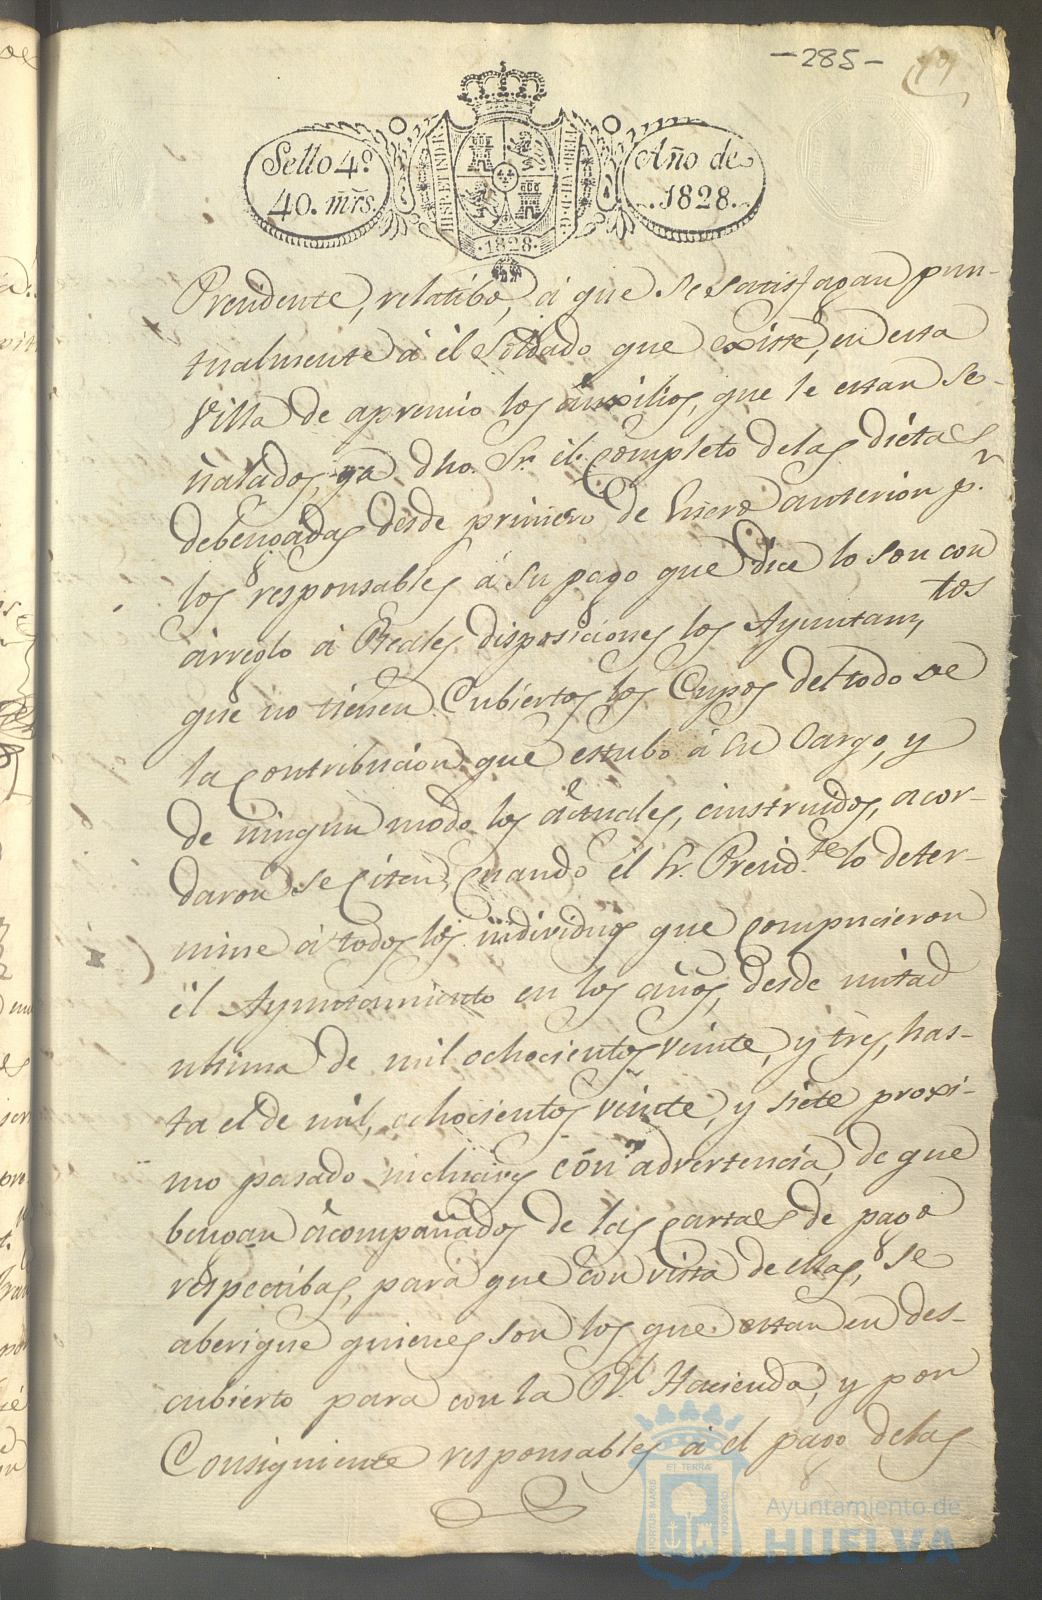 -285-
Sello 4º
40. mrs.
HISP. ET IND. R.
1828.
Año de
1828.
Presidente, relatibo, á que se satisfagan pun-
tualmente á él Soldado que existe, en esta
Villa de apremio los áuxilios, que le estan se-
ñalados, ya dho. Sr. él completo delas diétas
debengadas desde primero de Enero anterior p.r
los responsables á su pago que dice lo son con
árreglo á Reales disposiciones los Ayuntam.tos
que no tienen Cubiertos los Cupos del todo de
la contribucion que estubo á su Cargo, y
de ningun modo los áctuales, éinstruidos, acor-
daron se Citen, cuando él Sr. Presid.te lo deter-
mine á todos los individuos que compucieron
él Ayuntamiento en los años, desde mitad
ultima de mil ochocientos veinte, y tres, has-
ta el de mil, ochocientos veinte, y siete proxi-
mo pasado inclusives cón advertencia, de que
bengan ácompañados de las cartas de pago
respectibas, para que con vista de ellas, se
aberigue quienes son los que estan en des-
cubierto para con la R.l Hacienda, y por
Consiguiente responsables á el pago delas
PORTUS MARIS
ET TERRÆ
CUSTODIA
Ayuntamiento de
HUELVA